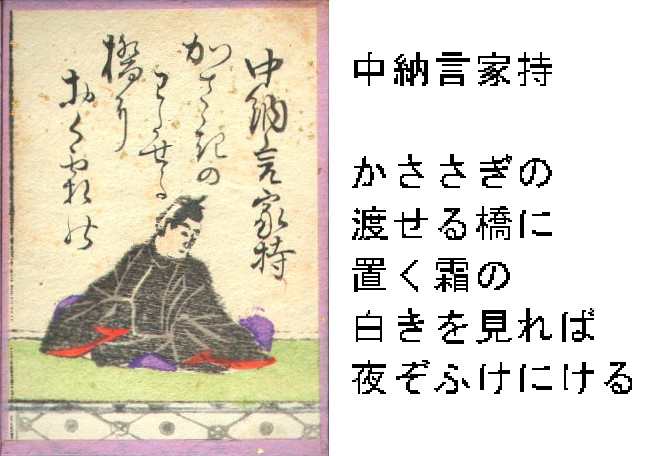 中納言家持
かさゝ記の
わたせる
橋に
おく霜の
中納言家持
かささぎの
渡せる橋に
置く霜の
白きを見れば
夜ぞふけにける